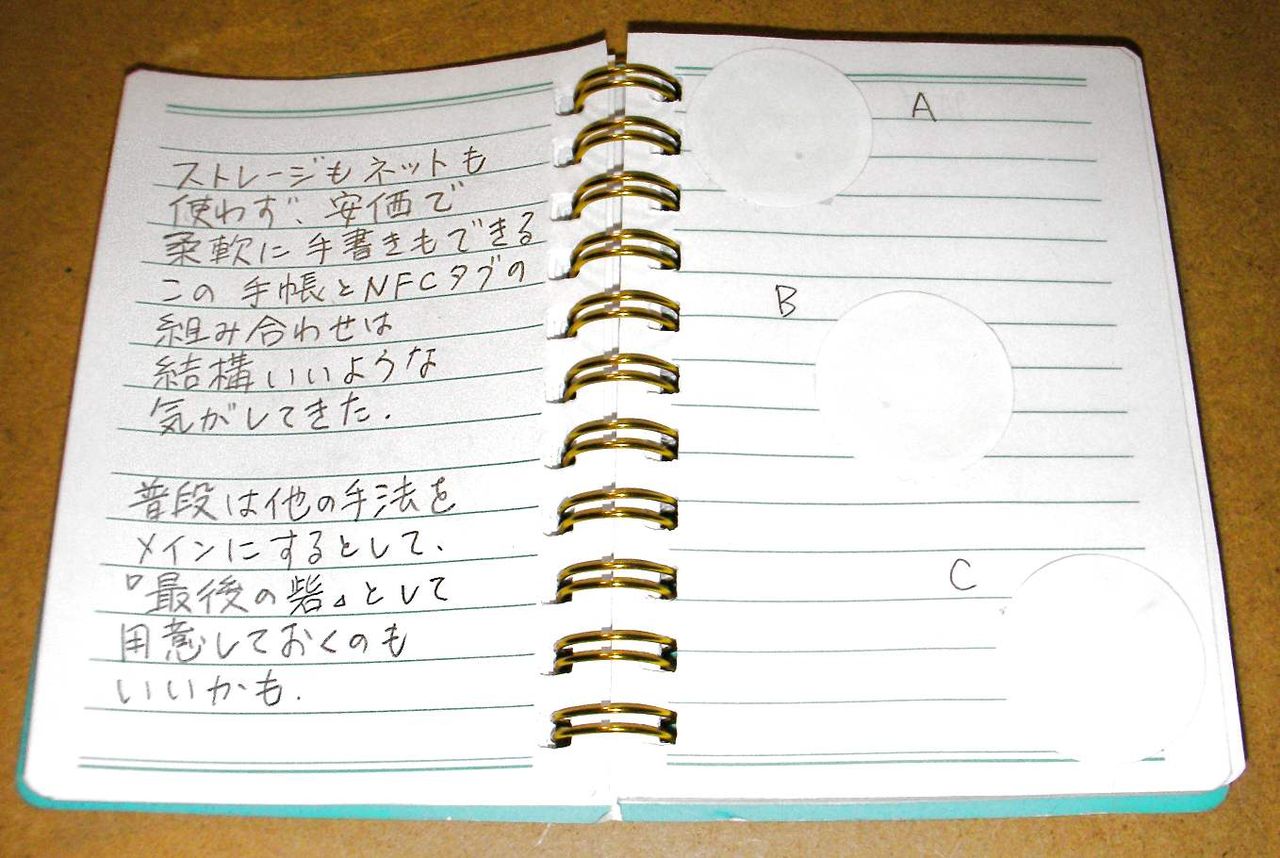 ストレージもネットも
使わず、安価で
柔軟に手書きもできる
この手帳とNFCタブの
組み合わせは
結構いいような
気がしてきた.
普段は他の手法を
メインにするとして、
『最後の砦』として
用意しておくのも
いいかも.
A
B
C